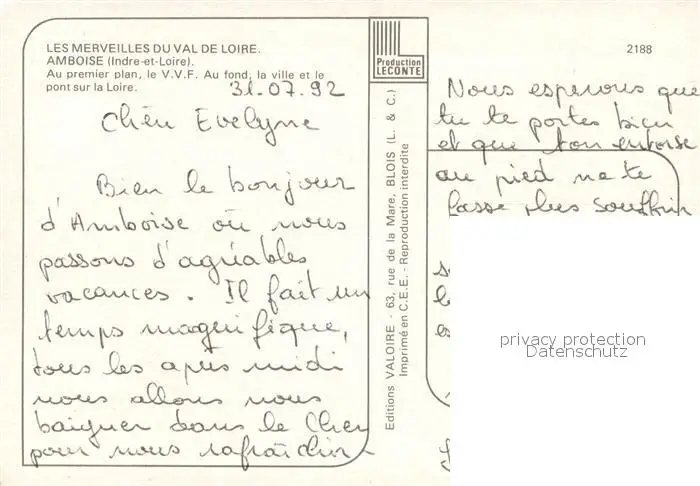 LES MERVEILLES DU VAL DE LOIRE.
AMBOISE (Indre-et-Loire).
Au premier plan, le V.V.F. Au fond, la ville et le
pont sur la Loire.
31.07.92
Chère Evelyne
Bien le bonjour
d'Amboise où nous
passons d'agréables
vacances. Il fait un
temps magnifique,
tous les après midi
nous allons nous
baigner dans le Cher
pour nous rafraîchir
Production
LECONTE
Editions VALOIRE - 63, rue de la Mare, BLOIS (L. & C.)
Imprimé en C.E.E. - Reproduction interdite
2188
Nous esperons que
tu te portes bien
et que ton entorse
au pied ne te
fasse plus souffrir
privacy protection
Datenschutz